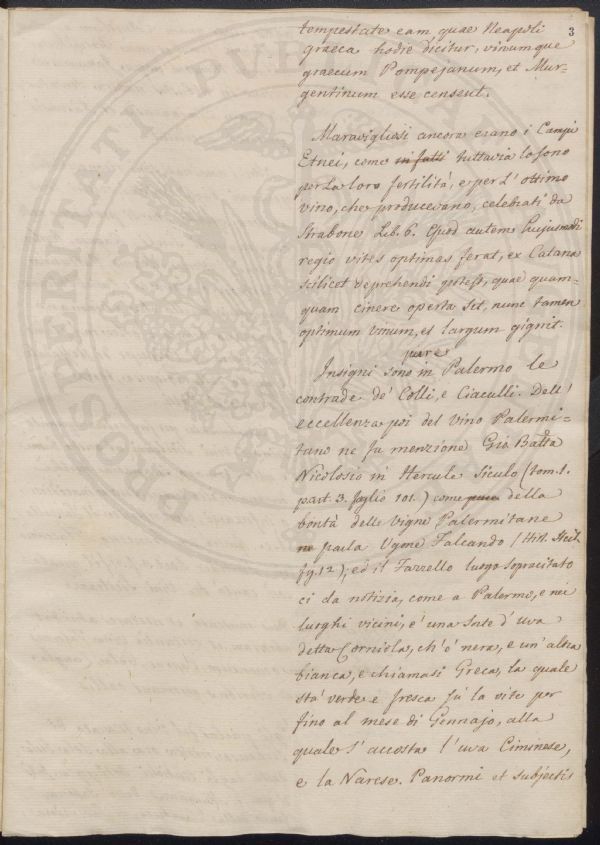 3
tempestate eam, quae Neapoli
graeca hodie dicitur, vinumque
graecum Pompejanum, et Mur=
gentinum esse censent.
Maravigliosi ancora erano i Campi
Etnei, come in fatti tuttavia lo sono
per la loro fertilità, e per l'ottimo
vino, che producevano, celebrati da
Strabone Lib. 6. Quod autem hujusmodi
regio vites optimas ferat, ex Catana
scilicet deprehendi potest, quae quam=
quam cinere operta sit, nunc tamen
optimum vinum, et largum gignit.
pure
Insigni sono in Palermo le
contrade de' Colli, e Ciaculli. Dell'
eccellenza poi del vino Palermi=
tano ne fa menzione Gio. Batta
Nicolosio in Hercule Siculo (tom. 1.
part. 3. foglio 101.) come pure della
bontà delle Vigne Palermitane
ne parla Ugone Falcando (Hist. Sicil.
fg. 12); ed il Fazzello luogo sopracitato
ci da notizia, come a Palermo, e nei
luoghi vicini, e' una sorte d'uva
detta Corniola, ch'e' nera, e un'altra
bianca, e chiamasi Greca, la quale
sta' verde e fresca sù la vite per
fino al mese di Gennajo, alla
quale s'accosta l'uva Ciminese,
e la Narese. Panormi et subjectis
PROSPERITATI PUBLICAE